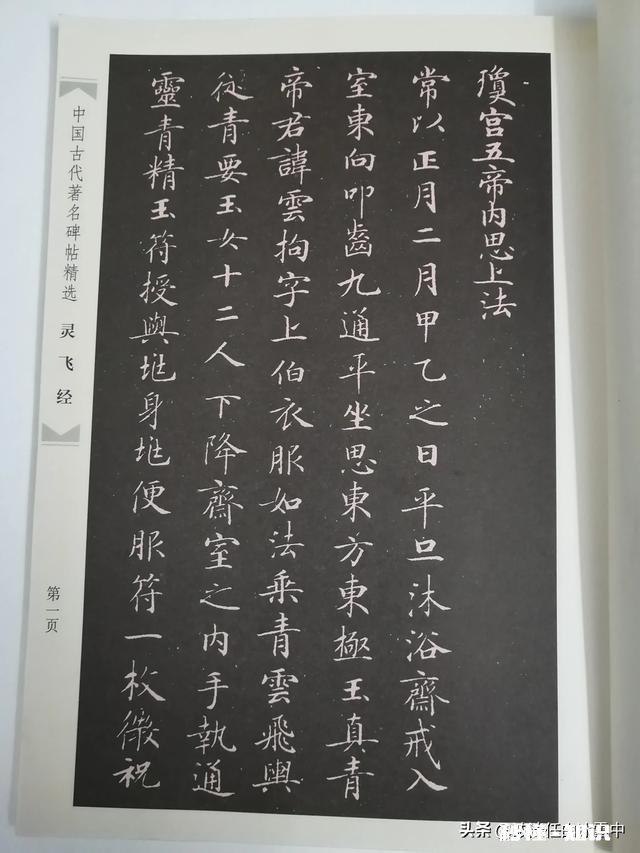 瓊宫五帝内思上法
常以正月二月甲乙之日平旦沐浴齋戒入
室東向叩齒九通平坐思東方東極玉真青
帝君諱雲拘字上伯衣服如法乘青雲飛輿
從青要玉女十二人下降齋室之内手執通
靈青精玉符授與兆身兆便服符一枚微祝
中国古代著名碑帖精选 灵飞经
第一页
头条